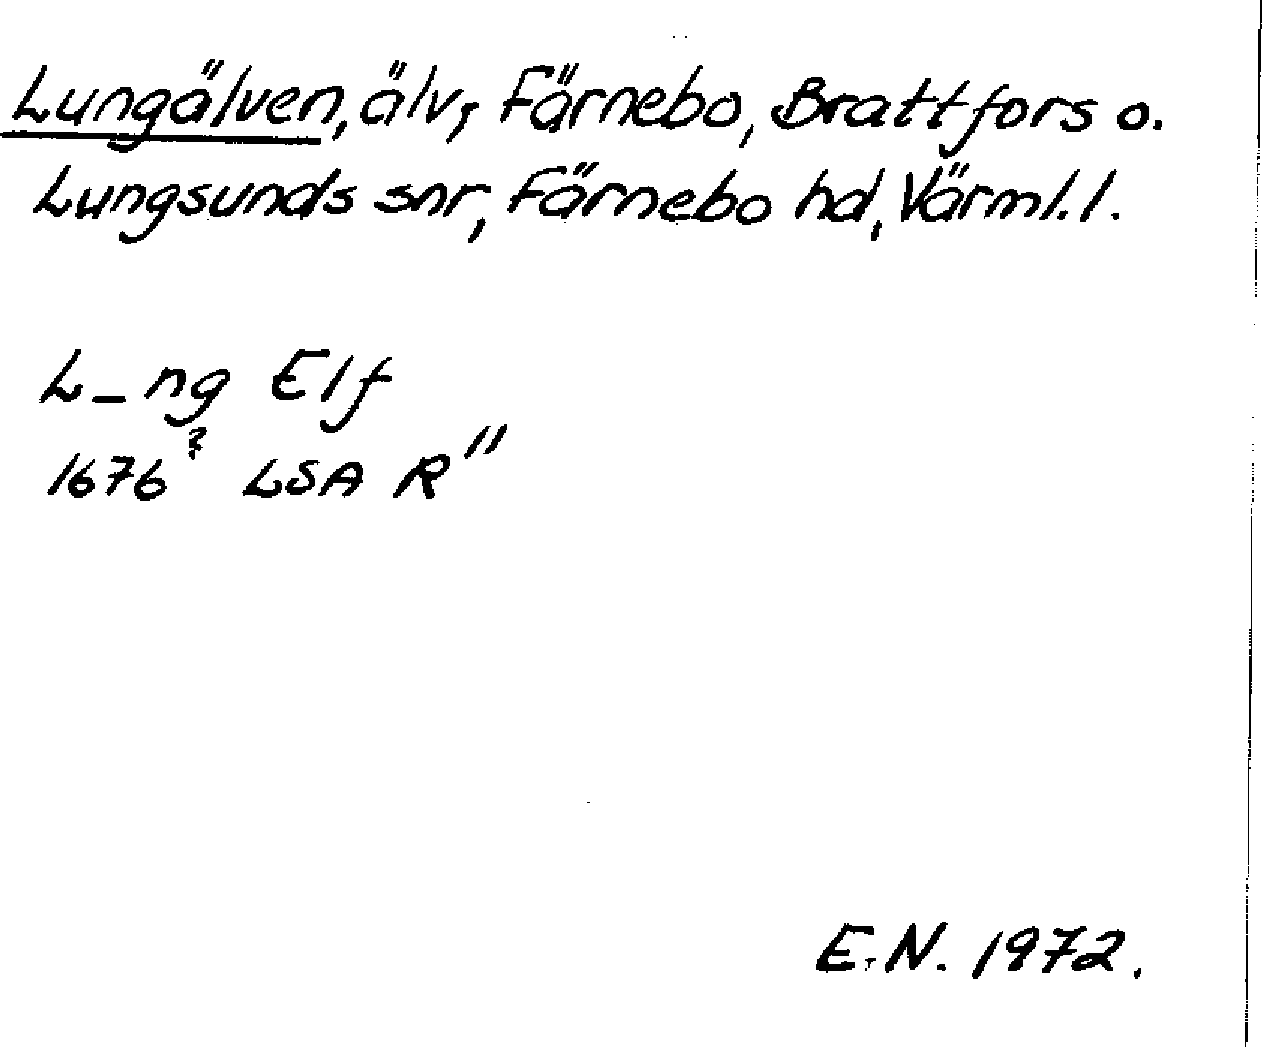 Lungälven, älv, Färnebo, Brattfors o.
Lungsunds snr, Färnebo hd, Värml. l.
L_ng Elf
1676? LSA R"
E.N. 1972.